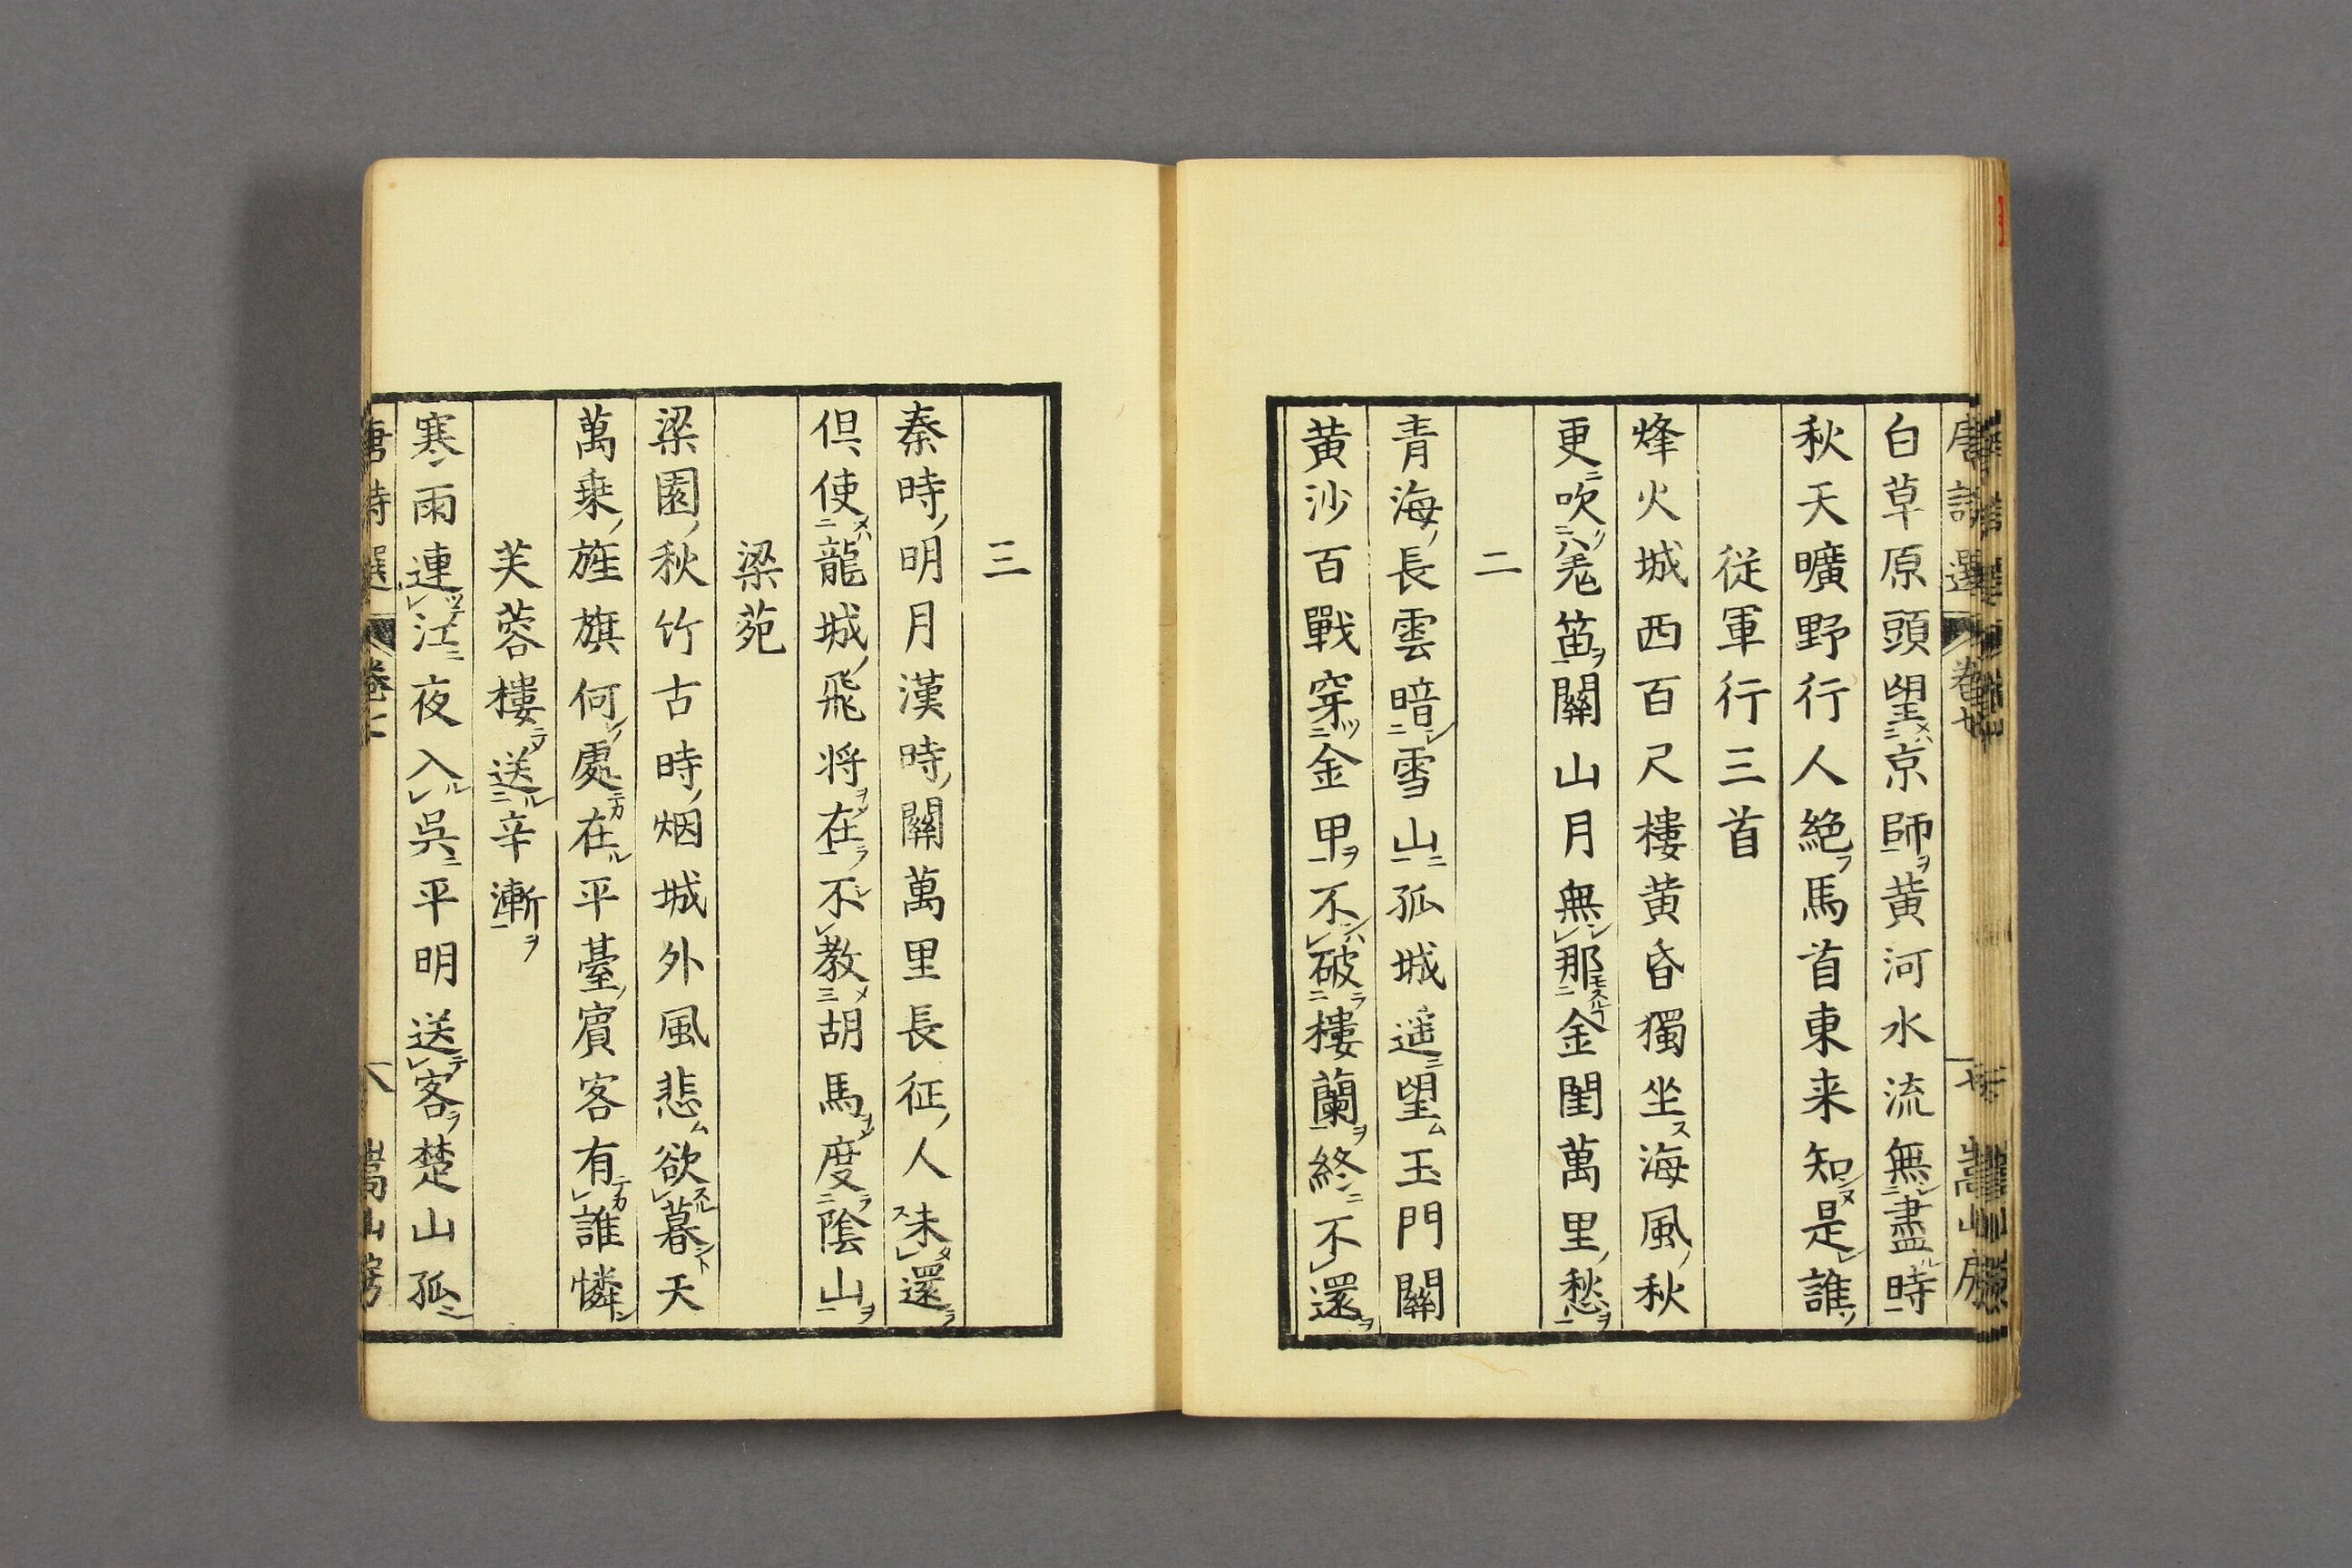 白草原頭望京師黄河水流無盡時
秋天曠野行人絶馬首東来知是誰
従軍行三首
烽火城西百尺樓黄昏獨坐海風秋
更吹羌笛關山月無那金閨萬里愁
二
青海長雲暗雪山孤城遥望玉門關
黄沙百戰穿金甲不破樓蘭終不還
三
秦時明月漢時關萬里長征人未還
但使龍城飛将在不教胡馬度陰山
梁苑
梁園秋竹古時烟城外風悲欲暮天
萬乗旌旗何處在平臺賓客有誰憐
芙蓉樓送辛漸
寒雨連江夜入呉平明送客楚山孤
唐詩選 卷七 八 嵩山房